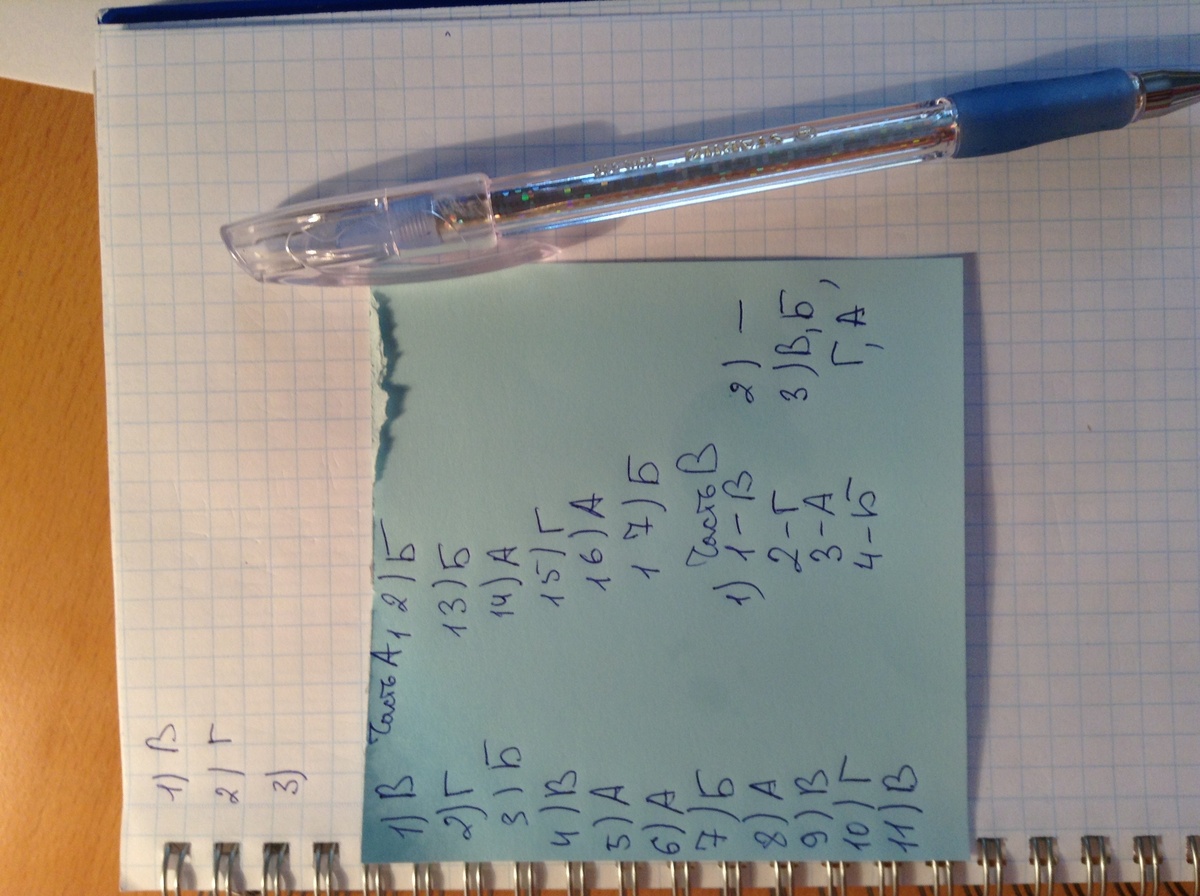 1) В
2) Г
3)
Часть А
1) В
2) Г
3) Б
4) В
5) А
6) А
7) Б
8) А
9) В
10) Г
11) В
12) Б
13) Б
14) А
15) Г
16) А
17) Б
Часть В
1) 1 – В
2 – Г
3 – А
4 – Б
2) —
3) В, Б,
Г, А